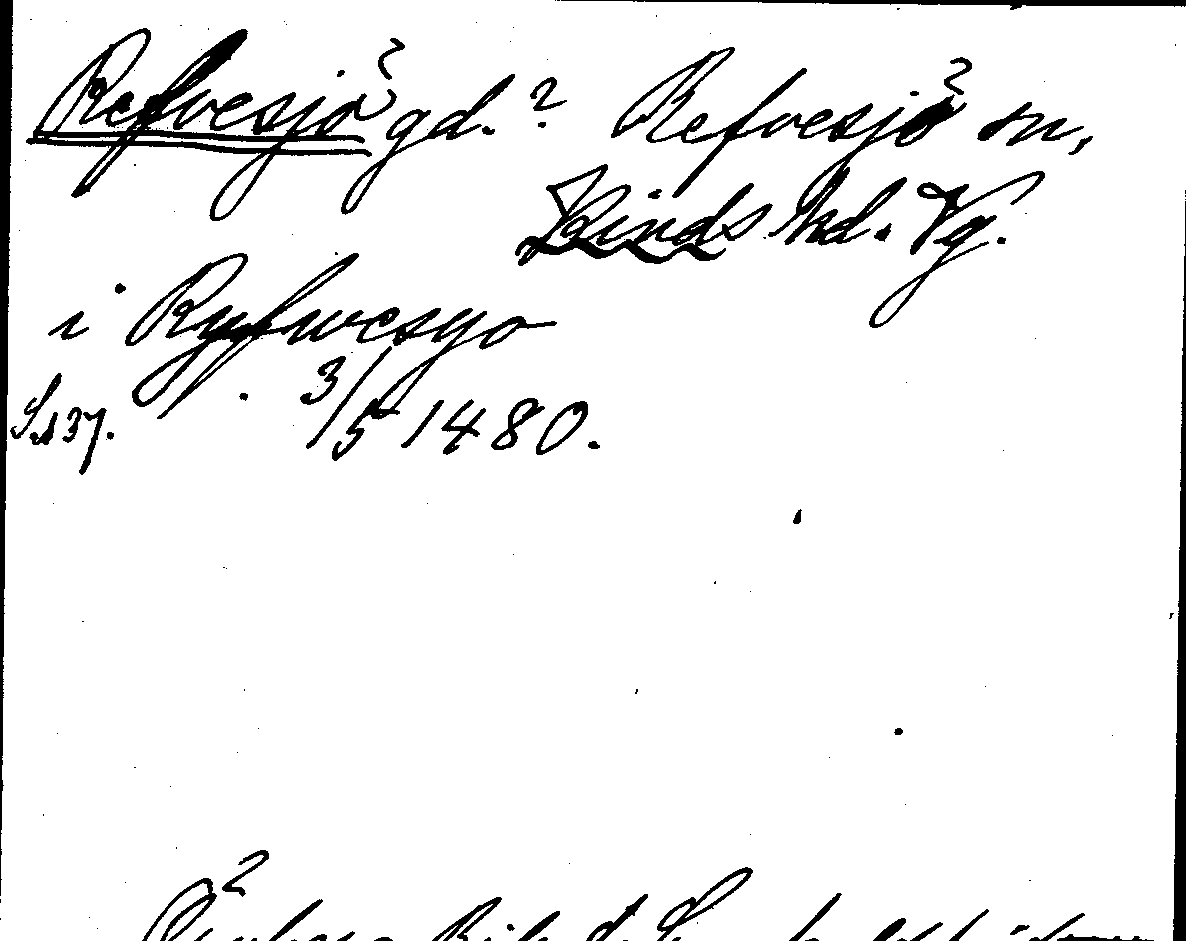 Refvesjö gd.? Refvesjö sn,
Kinds hd. Vg.
i Ryfwesyo
S. 137. 3/5 1480.